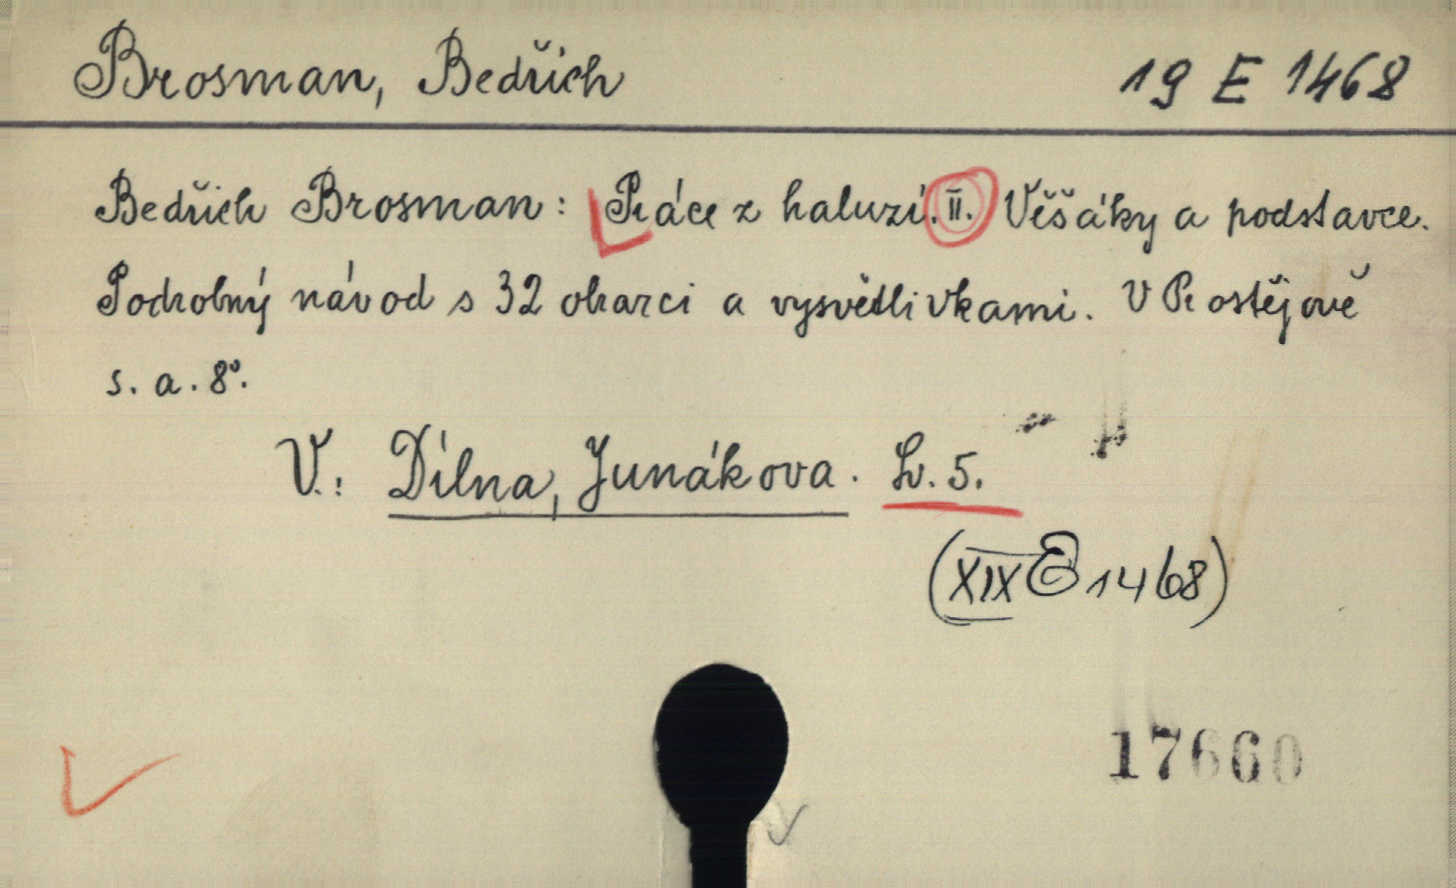 Brosman, Bedřich 19 E 1468
Bedřich Brosman: Práce z haluzí. II. Věšáky a podstavce.
Podrobný návod s 32 obrazci a vysvětlivkami. V Prostějově
s. a. 8°.
V.: Dílna, Junákova. Sv. 5.
(XIX E 1468)
17660